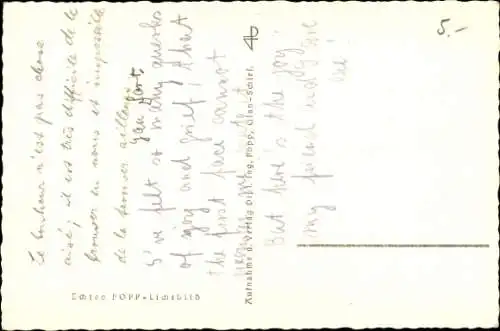 Le bonheur n'est pas chose
aisée; il est très difficile de le
trouver en nous et impossible
de le trouver ailleurs.
I've felt so many
of joy and grief, that
the first face cannot
But here's the joy:
my friend and I are
one!
Echtes POPP-Lichtbild
Aufnahme u. Verlag Dipl. Ing. Popp, Glan-Schief.
5.-